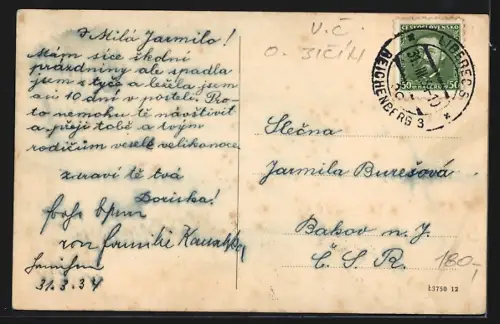 Milá Jarmilo!
Mám sice školní
prázdniny ale spadla
jsem s tyče a ležela jsem
asi 10 dní v posteli. Pro-
to nemohu tě navštívit
a přeji tobě a tvým
rodičům veselé velikonoce.
zdraví tě tvá
Doriska!
von Familie
31.3.34
V.Č.
O. JIČÍN
ČESKOSLOVENSKO
50 50
LIBEREC 3
REICHENBERG 3
Slečna
Jarmila Burešová
Bakov n. J.
Č. S. R.
180,-
13750 12